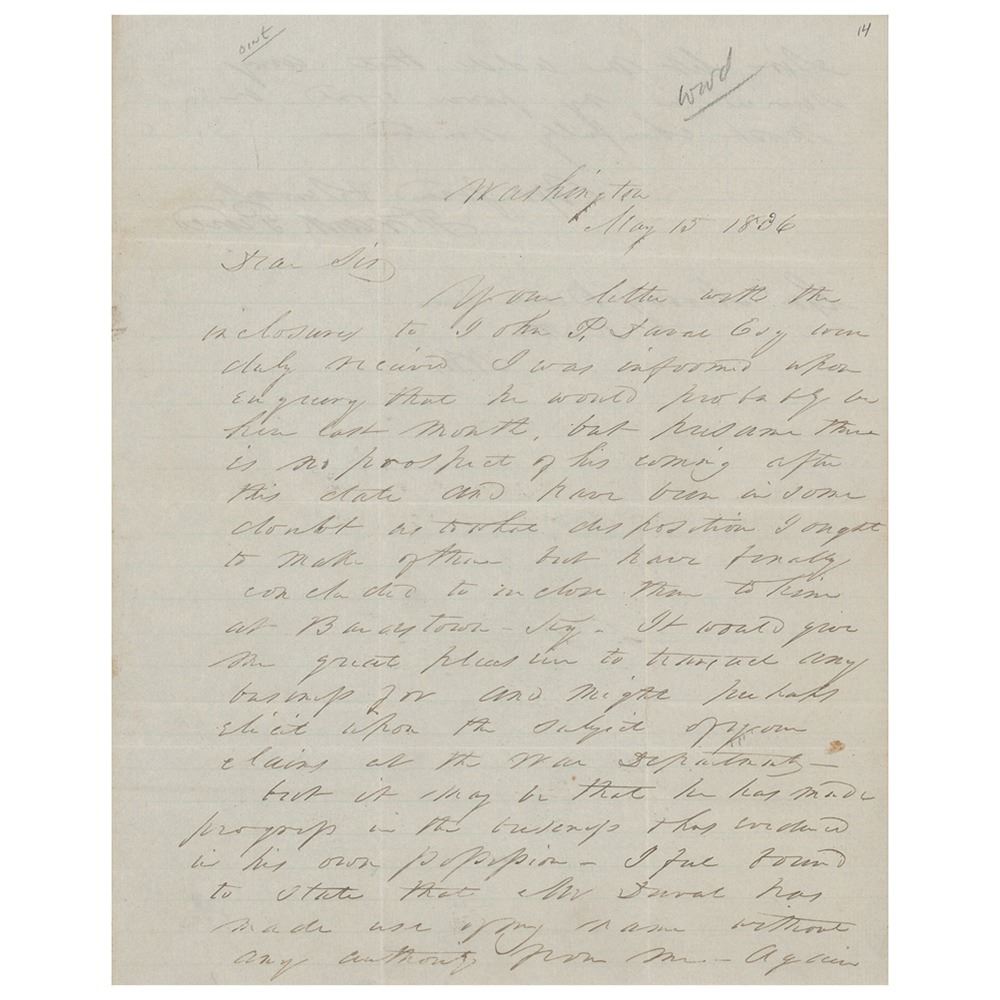 14
wwd
Washington
May 15 1836
Dear Sir
Your letter with the
inclosures to John P. Duval Esq were
duly received I was informed upon
enquiry that he would probably be
here last month, but presume there
is no prospect of his coming after
this date and have been in some
doubt as to what disposition I ought
to make of them but have finally
concluded to inclose them to him
at Bardstown - Ky - It would give
me great pleasure to transact any
business for and might perhaps
elicit upon the subject of your
claims at the War Department -
but it may be that he has made
progress in the business & has evidence
in his own possession - I feel bound
to state that Mr Duval has
made use of my name without
any authority from me - Again